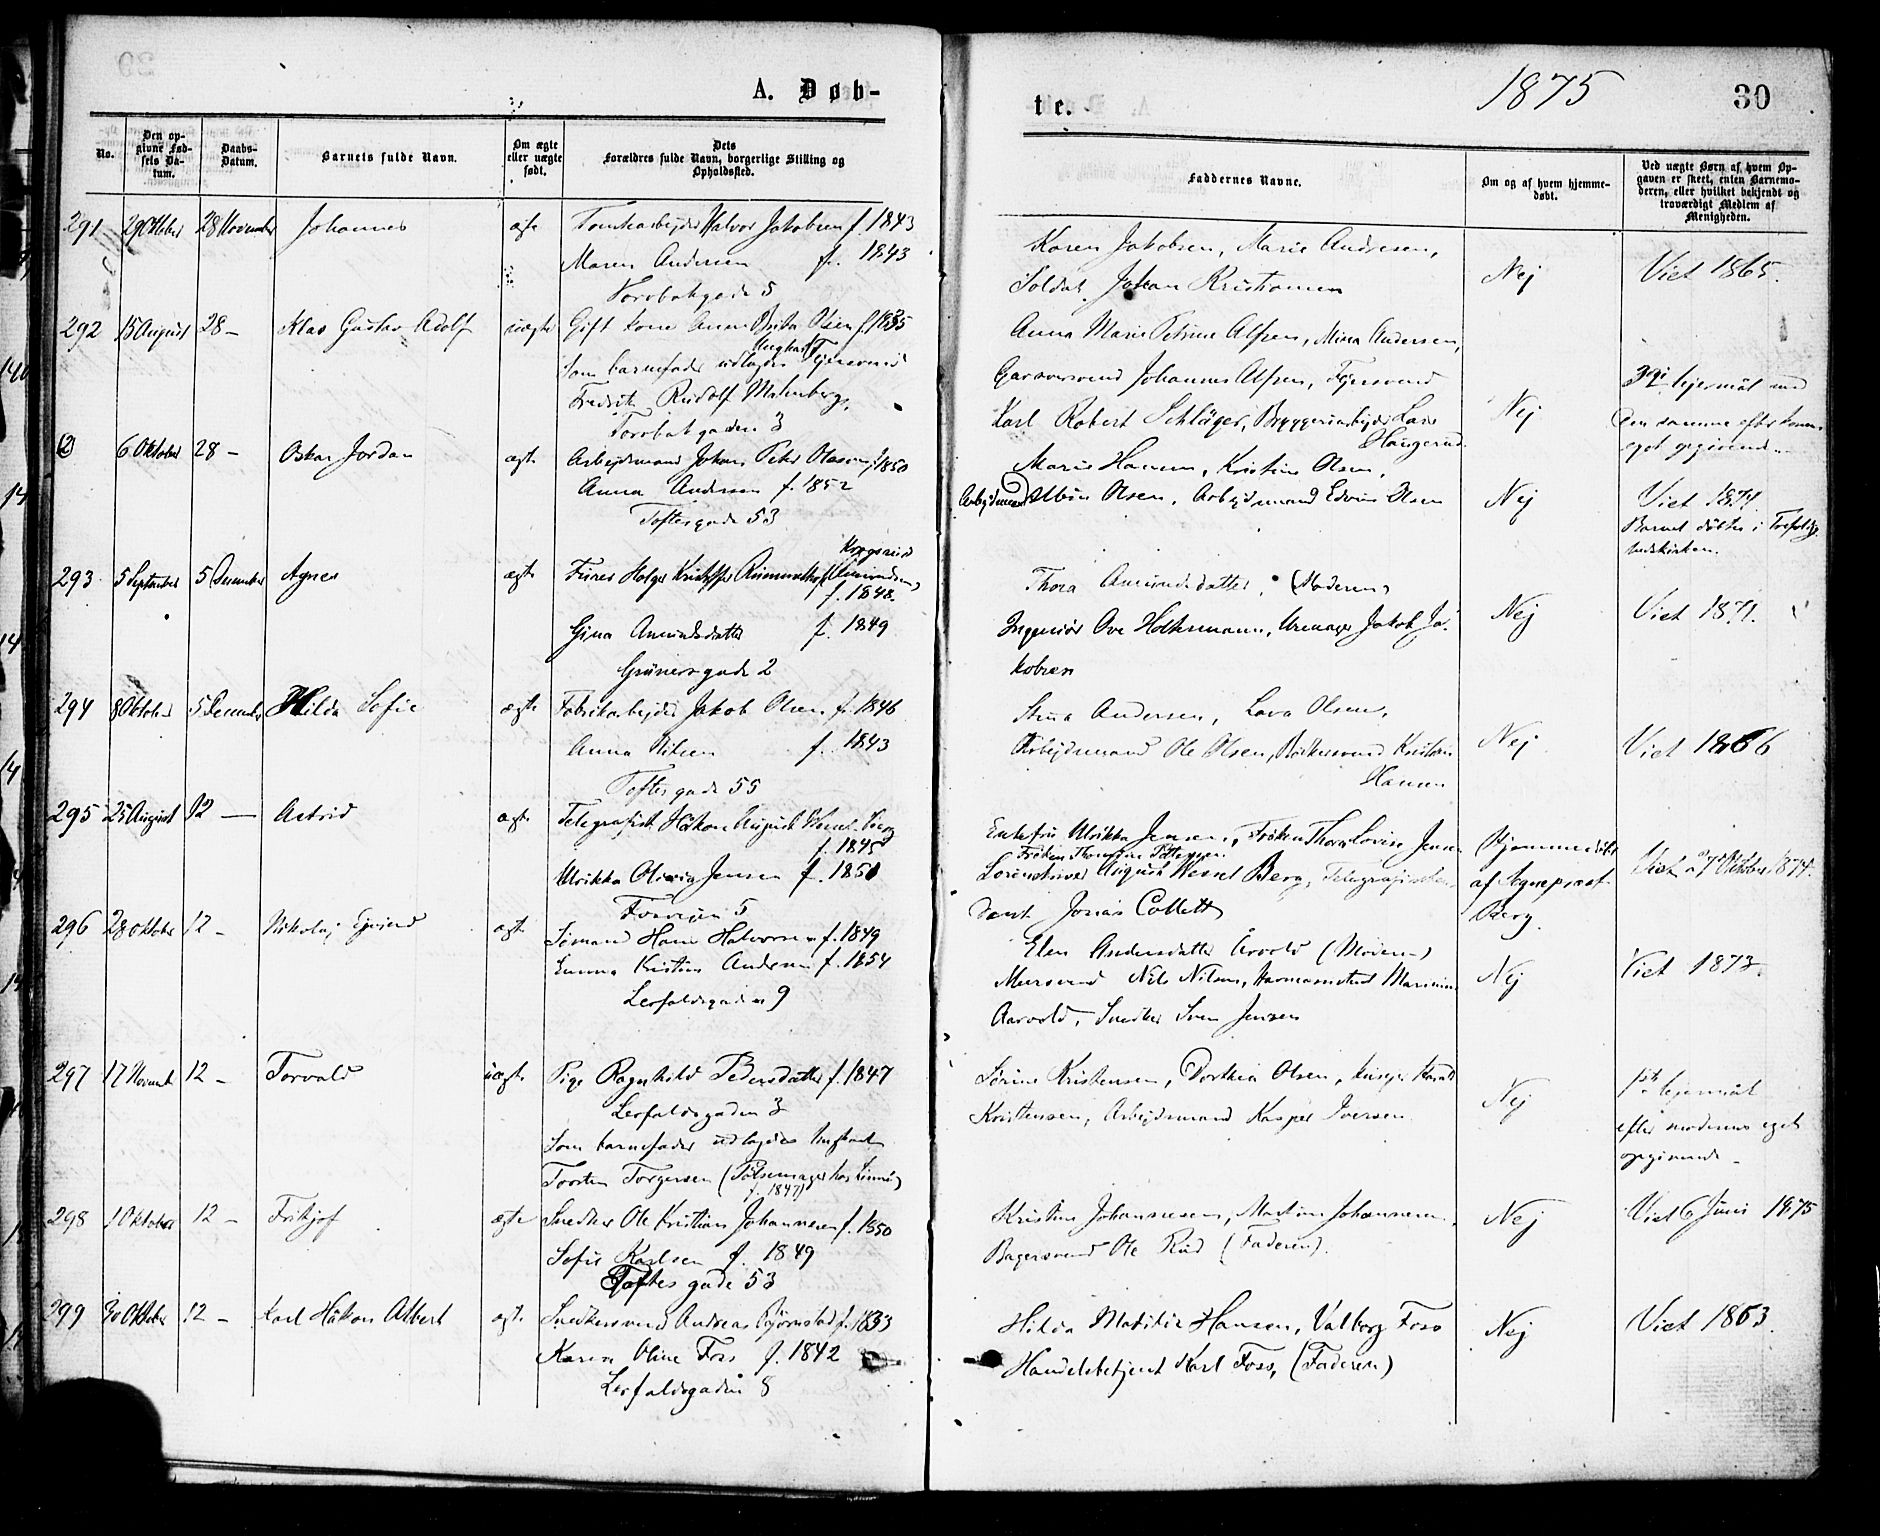 A. Døb-
te.
1875
30
No.
Den op-
givne Fød-
sels Da-
tum.
Daabs-
Datum.
Barnets fulde Navn.
Om ægte
eller uægte
født.
Dets
Forældres fulde Navn, borgerlige Stilling og
Opholdssted.
Faddernes Navne.
Om og af hvem hjemme-
døbt.
Ved uægte Børn af hvem Op-
gaven er skeet, enten Barnemo-
deren, eller hvilket bekjendt og
troværdigt Medlem af
Menigheden.
291 29 Oktober 28 November Johannes ægte Halvor Jakobsen f. 1843
Maren Andersen f. 1843
5
Karen Jakobsen, Marie Andresen,
Soldat Johan Kristiansen
Nej
Viet 1865.
292 15 August 28 – Klas Gustav Adolf uægte Gift kone Anne Olsen
Som barnefader udlagdes Ungkarl
Fredrik Rudolf Malmberg,
3
Anna Marie Petrine Alfsen, Mina Andersen,
Garversvend Johannes Alfsen,
Karl Robert Schläger, Bryggeriarbejder Lars
Haugerud
Nej
lejermål med
den samme efter konens
eget opgivend –
6 Oktober 28 – Oskar Jordan ægte Arbejdsmand Johan Peter f. 1850
Anna Andersen f. 1852
Toftesgade 53
Marie Hansen, Kristine Olsen,
Arbejdsmand Albin Olsen, Arbejdsmand Edvin Olsen
Nej
Viet 1874.
Barnet døbtes i Trefoldig-
hedskirken.
293 5 September 5 December Agnes ægte Holger Kristoffer
f. 1848.
Gina Amundsdatter f. 1849
Grünersgade 2
Thora Amundsdatter, (Moderen)
Ingeniør Ove Holtermann, Urmager Jakob Ja-
kobsen
Nej
Viet 1871.
294 8 Oktober 5 December Hilda Sofie ægte Fabrikarbejder Jakob Olsen f. 1846
Anna Nilsen f. 1843
Toftesgade 55
Stina Andersen, Lava Olsen,
Arbejdsmand Ole Olsen, Kristian
Hansen
Nej
Viet 1866
295 25 August 12 — Astrid ægte Telegrafist Håkon August Wessel Berg
f. 1845
Ulrikka Olivia Jensen f. 1851
5
Enkefru Ulrikka Jensen, Frøken Thora Lovise Jensen
Frøken Thomine Pettersen
Sorenskriver August Wessel Berg,
Jonas Collett
Hjemmedøbt
af Sogneprest
Berg.
Viet 27 Oktober 1874.
296 28 Oktober 12 – Nikolaj Ejvind ægte Sømand Hans Halvorsen f. 1849
Emma Kristine Andersen f. 1854
Lerfaldsgaden 9
Elen Andersdatter Årvold (Moderen)
Mursvend Nils Nilsen, Marinius
Aarvold, Snedker Sven Jensen
Nej
Viet 1873.
297 17 Novemb. 12 – Torvald uægte Pige Ragnhild Pedersdatter f. 1847
Lerfaldsgaden 3
Som barnefader udlagdes Ungkarl
Torsten Torgersen (Pølsemager hos
f. 1847)
Sørine Kristensen, Dorthea Olsen,
Kristensen, Arbejdsmand Kasper Iversen
Nej
1ste lejermål
efter moderens eget
opgivende –
298 1 Oktober 12 – Fritjof ægte Snedker Ole Kristian Johannesen f. 1850
Sofie Karlsen f. 1849
Toftesgade 53
Kristine Johannesen, Martin Johannesen,
Bagersvend Ole Rud (Faderen).
Nej
Viet 6 Juni 1875
299 30 Oktober 12 – Karl Håkon Albert ægte Snedkersvend Andreas Bjørnstad f. 1833
Karen Oline Foss f. 1842
Lerfaldsgaden 8
Hilda Matilde Hansen, Valborg Foss
Handelsbetjent Karl Foss, (Faderen)
Nej
Viet 1863.